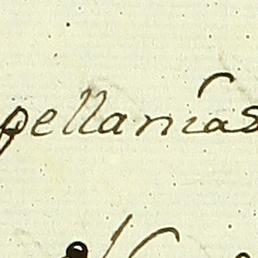 pellanías